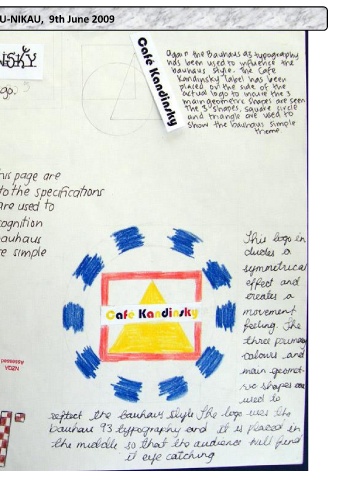 U-NIKAU, 9th June 2009
NSKY
go.
Café Kandinsky
Again the Bauhaus 93 typography
has been used to influence the
bauhaus style. The Café
Kandinsky label has been
placed on the side of the
actual logo to insure the 3
main geometric shapes are seen
The 3 shapes, square circle
and triangle are used to
show the bauhaus simple
theme
his page are
to the specifications
are used to
cognition
auhaus
re simple
Café Kandinsky
This logo in
cludes a
symmetrical
effect and
creates a
movement
feeling. The
three primary
colours and
main geomet-
ric shapes are
used to
reflect the bauhaus style The logo uses the
bauhaus 93 typography and it is placed in
the middle so that the audience will find
it eye catching
NZQA
Assessed